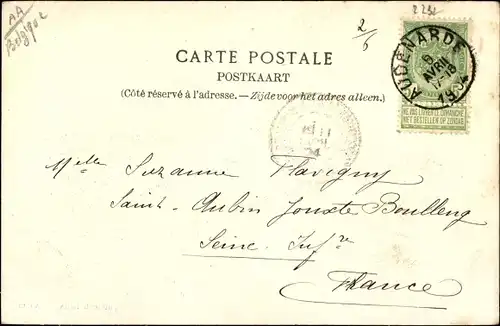 AA
Belgique
2/6
CARTE POSTALE
POSTKAART
(Côté réservé à l'adresse. — Zijde voor het adres alleen.)
AUDENARDE
AVRIL
17-18
NE PAS LIVRER LE DIMANCHE
NIET BESTELLEN OP ZONDAG
Melle Suzanne Flavigny
Saint-Aubin Jouxte Boulleng
Seine Infre
France